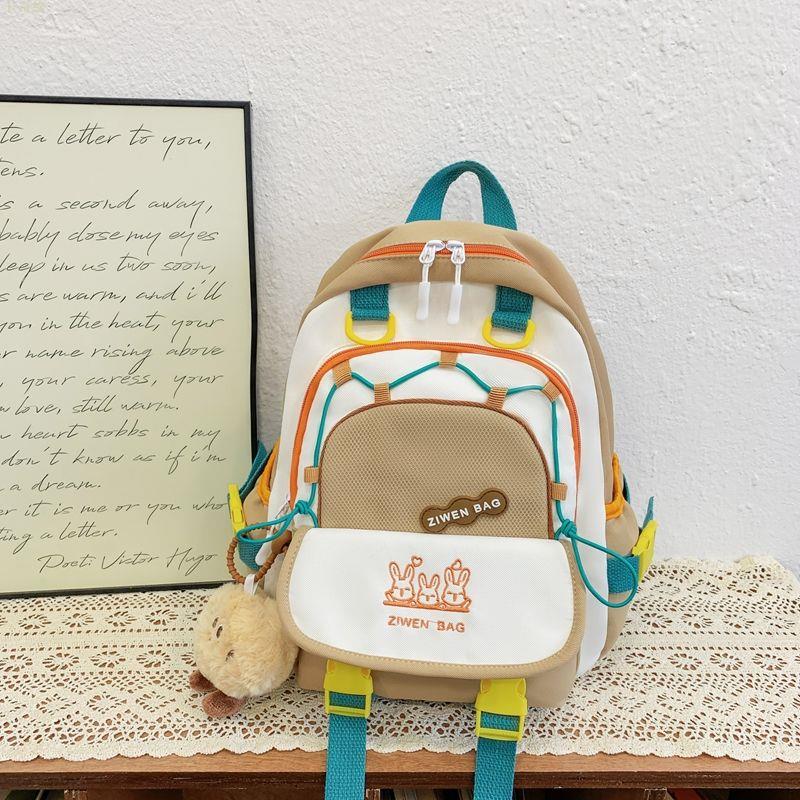 te a letter to you,
tens.
is a second away,
bably close my eyes
leep in us two soon,
s are warm, and i'll
you in the heat, your
r name rising above
, your caress, your
w love, still warm.
heart sobbs in my
don't know as if i'm
a dream.
er it is me or you who
ting a letter.
Poet: Victor Hugo
ZIWEN BAG
ZIWEN BAG